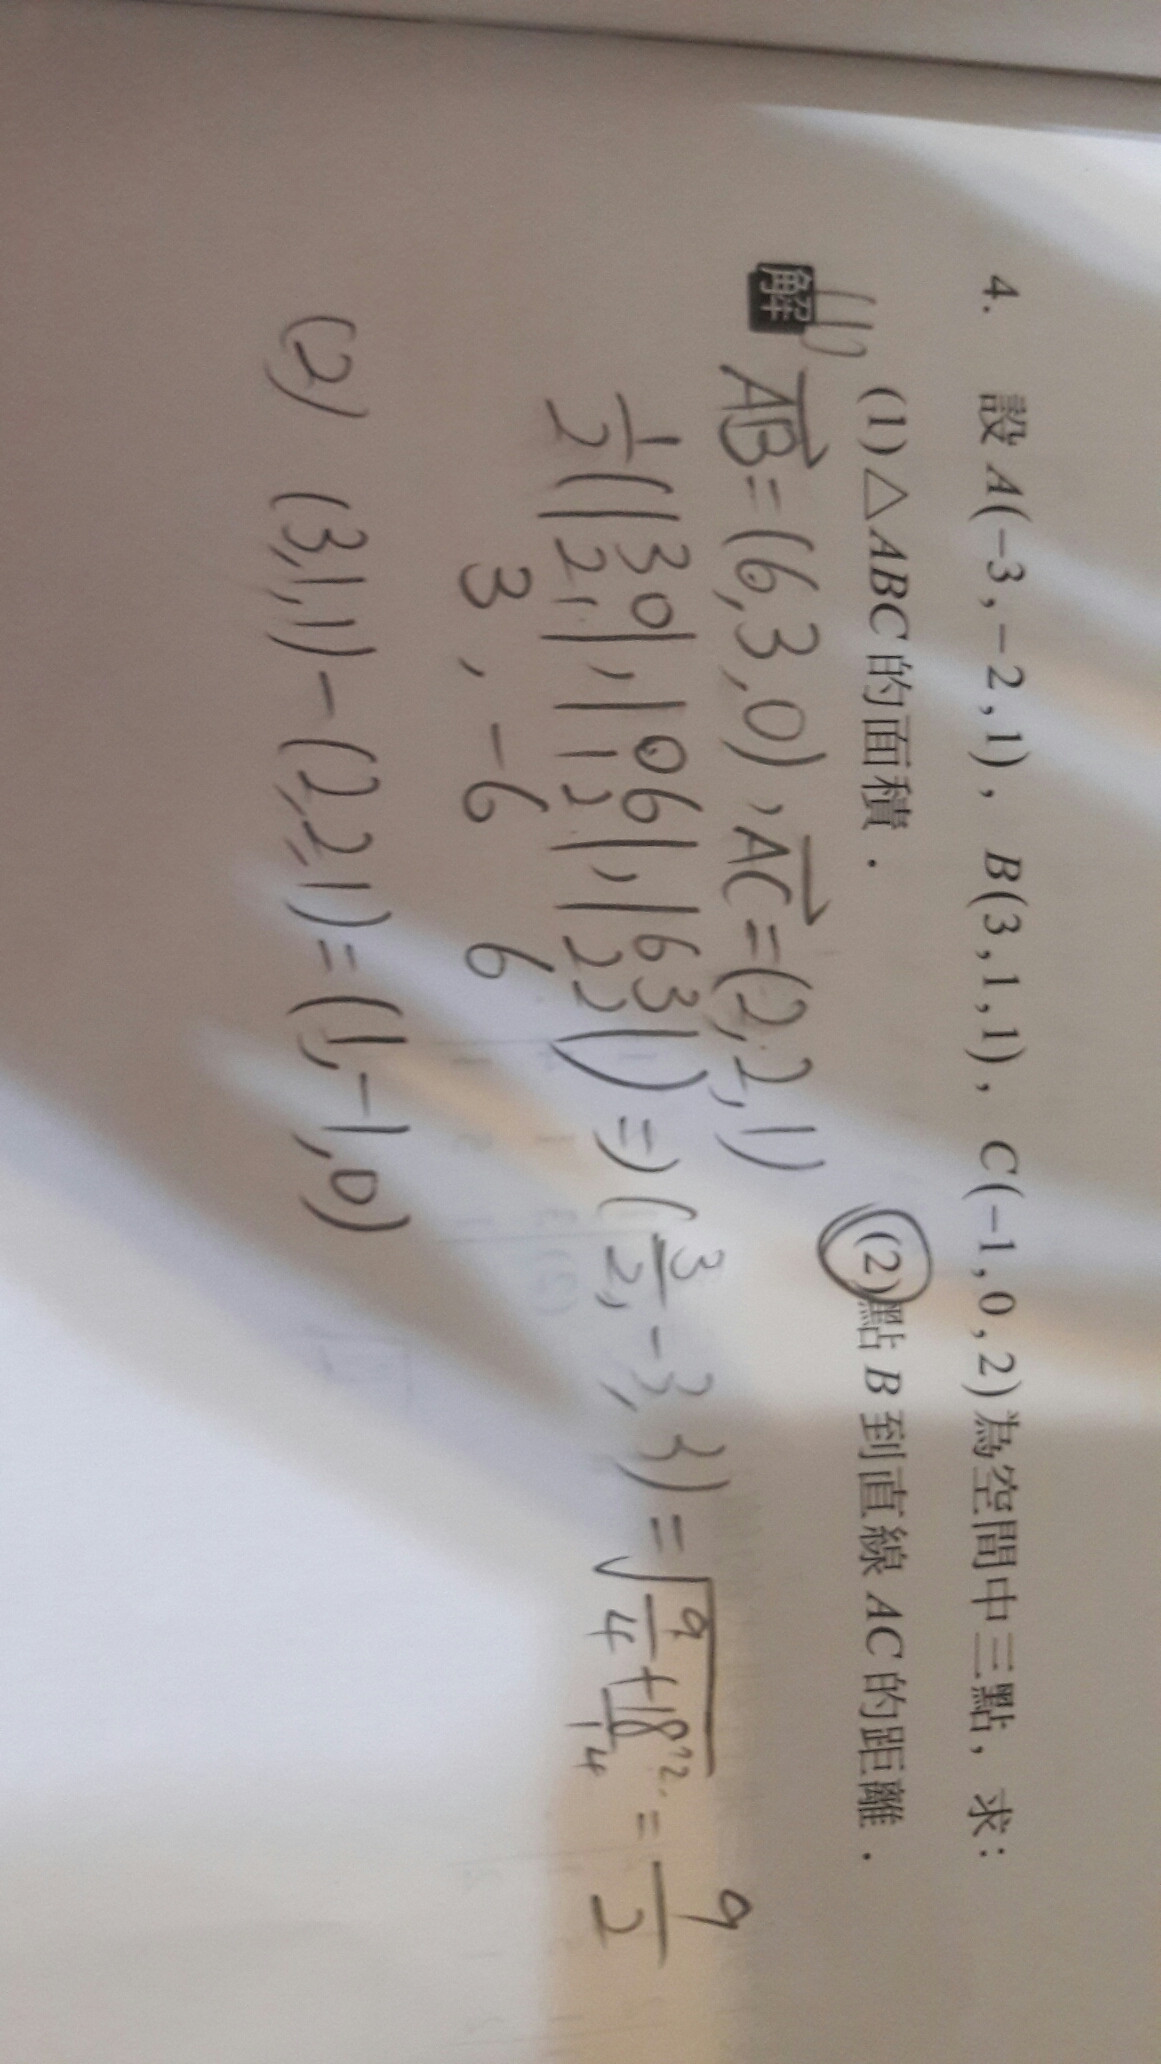 4. 設 A(−3,−2,1), B(3,1,1), C(−1,0,2)為空間中三點, 求:
(1)△ABC的面積. (2)點B到直線AC的距離.
(1)
解 AB=(6,3,0), AC=(2,2,1)
1/2(|3 0|,|0 6|,|6 3|)⇒(3/2,−3,3)=√(9/4+18)=9/2
|2 1| |1 2| |2 2|
3, −6 6
(2) (3,1,1)−(2,2,1)=(1,−1,0)